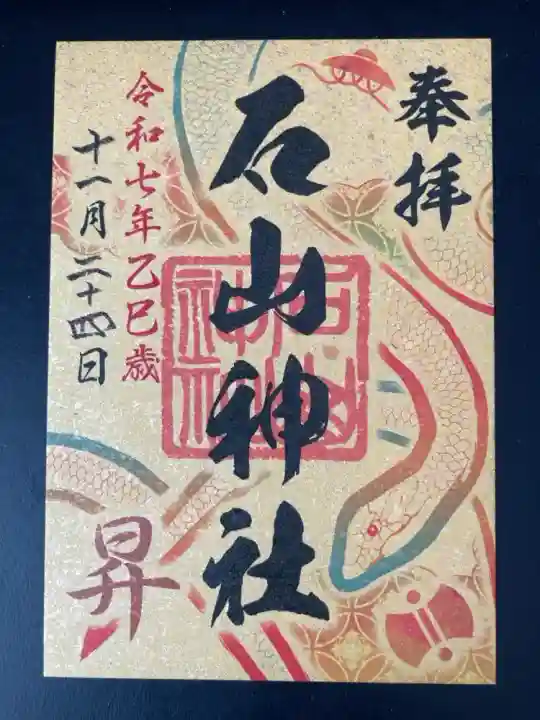 奉拝
石山神社
石山神社
令和七年乙巳歳
十一月二十四日
昇